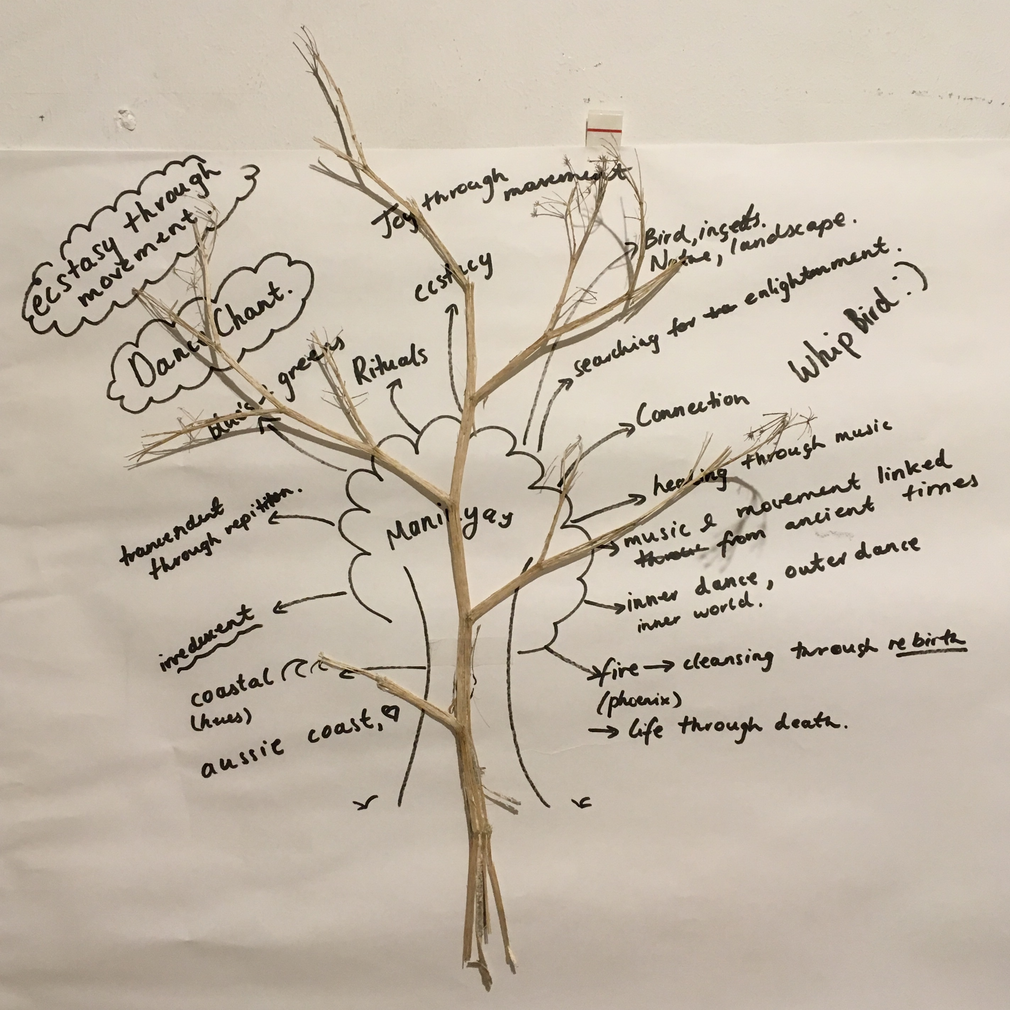 ecstasy through
movement.
Joy through movement
Bird, insects.
Nature, landscape.
ecstacy
searching for enlightenment.
Dance Chant.
Whip Bird :)
greens
Rituals
Connection
healing through music
music & movement linked
from ancient times
trancendent
through repitition.
inner dance, outer dance
inner world.
coastal
(hues)
fire → cleansing through rebirth
(phoenix)
→ life through death.
aussie coast, ♡